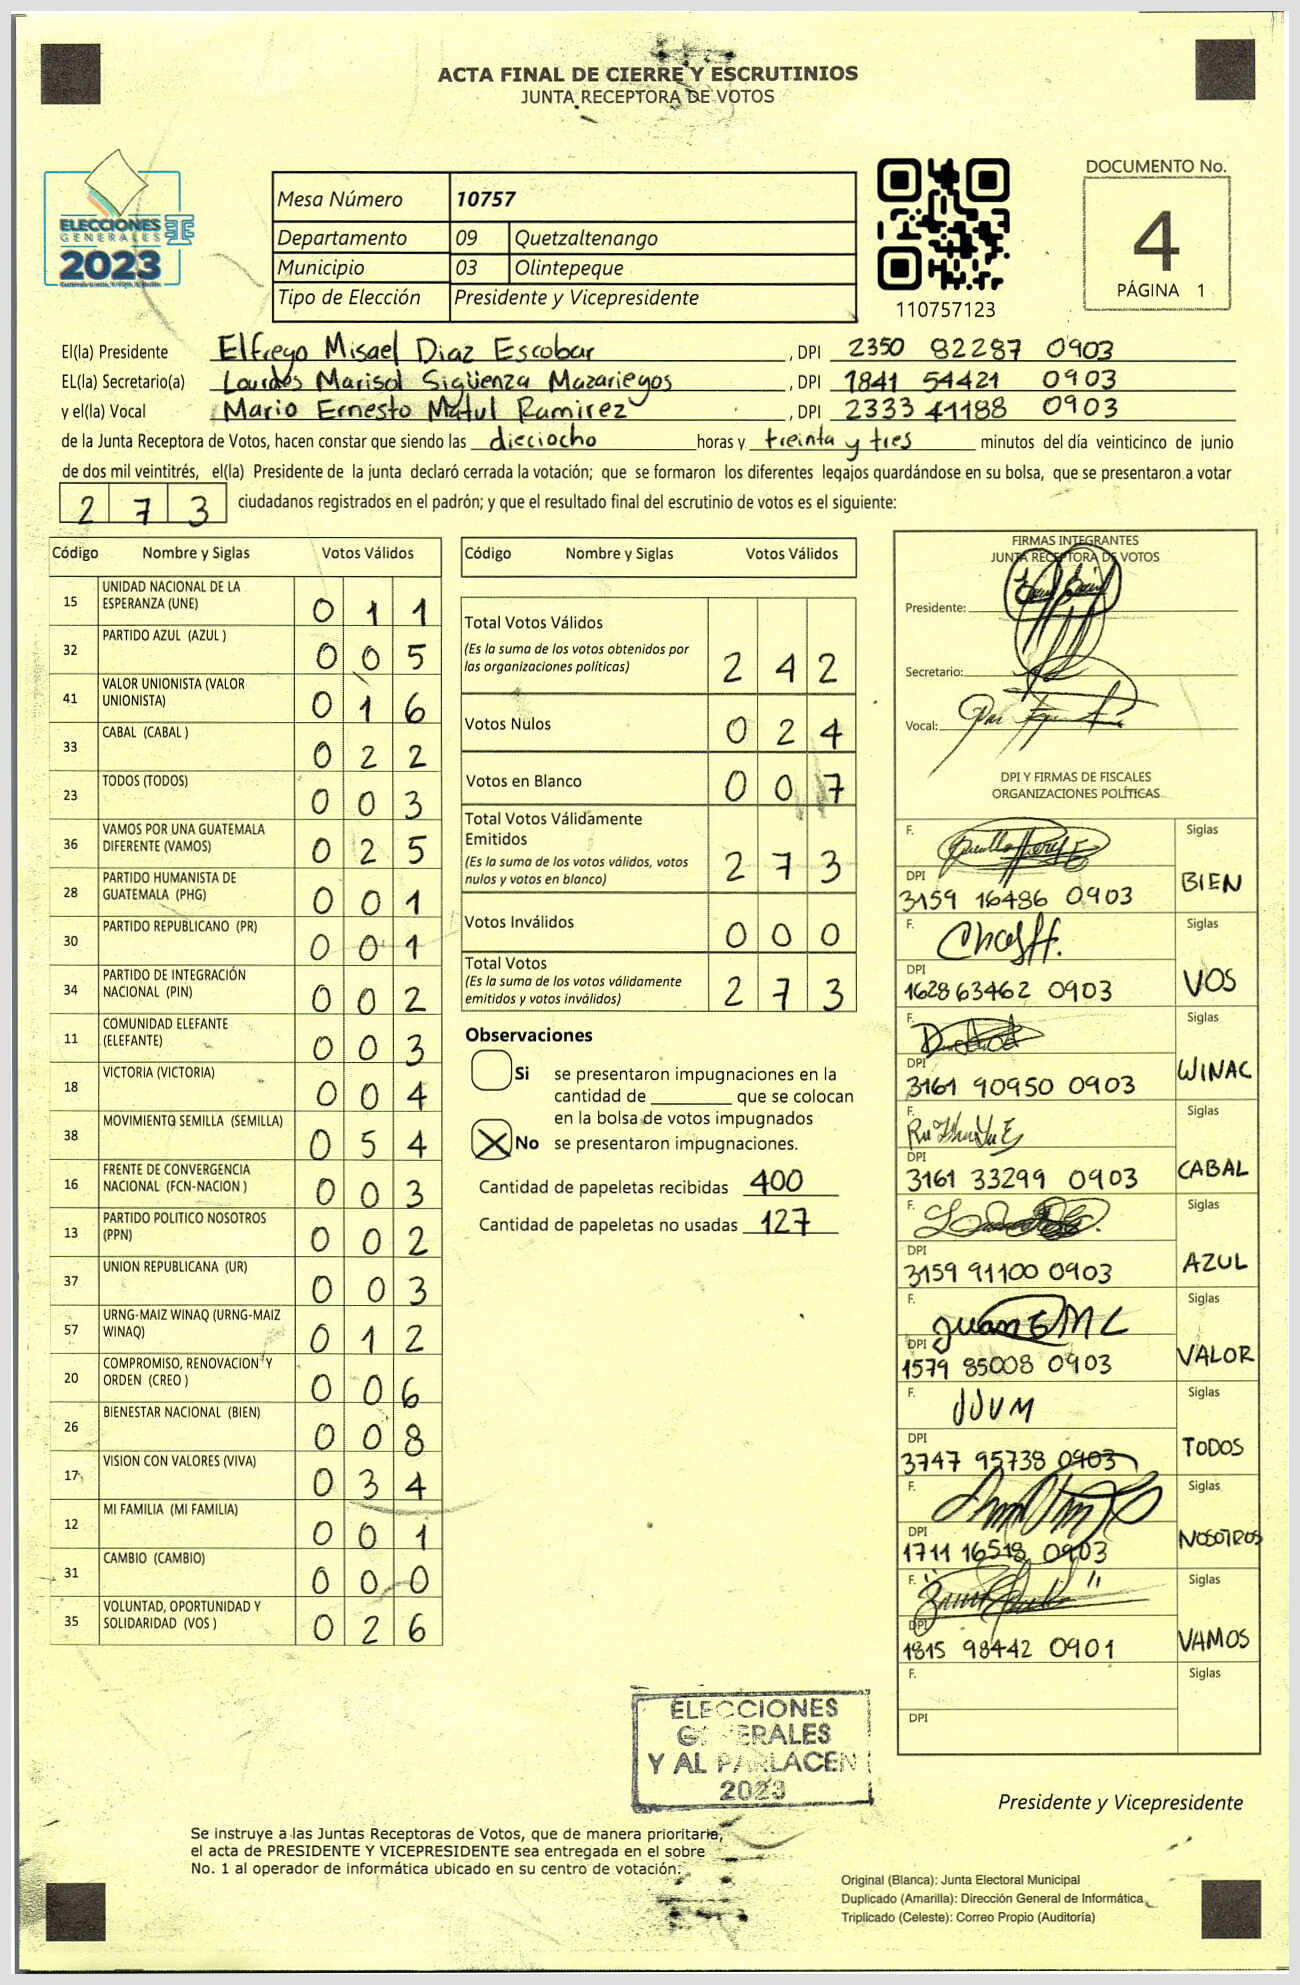 ACTA FINAL DE CIERRE Y ESCRUTINIOS
JUNTA RECEPTORA DE VOTOS
ELECCIONES
GENERALES
2023
Mesa Número 10757
Departamento 09 Quetzaltenango
Municipio 03 Olintepeque
Tipo de Elección Presidente y Vicepresidente
110757123
DOCUMENTO No.
4
PÁGINA 1
El(la) Presidente Elfrego Misael Diaz Escobar , DPI 2350 82287 0903
EL(la) Secretario(a) Lourdes Marisol Sigüenza Mazariegos , DPI 1841 54421 0903
y el(la) Vocal Mario Ernesto Matul Ramirez , DPI 2333 41188 0903
de la Junta Receptora de Votos, hacen constar que siendo las dieciocho horas y treinta y tres minutos del día veinticinco de junio
de dos mil veintitrés, el(la) Presidente de la junta declaró cerrada la votación; que se formaron los diferentes legajos guardándose en su bolsa, que se presentaron a votar
273 ciudadanos registrados en el padrón; y que el resultado final del escrutinio de votos es el siguiente:
Código Nombre y Siglas Votos Válidos
15 UNIDAD NACIONAL DE LA
ESPERANZA (UNE) 011
32 PARTIDO AZUL (AZUL ) 005
41 VALOR UNIONISTA (VALOR
UNIONISTA) 016
33 CABAL (CABAL ) 022
23 TODOS (TODOS) 003
36 VAMOS POR UNA GUATEMALA
DIFERENTE (VAMOS) 025
28 PARTIDO HUMANISTA DE
GUATEMALA (PHG) 001
30 PARTIDO REPUBLICANO (PR) 001
34 PARTIDO DE INTEGRACIÓN
NACIONAL (PIN) 002
11 COMUNIDAD ELEFANTE
(ELEFANTE) 003
18 VICTORIA (VICTORIA) 004
38 MOVIMIENTO SEMILLA (SEMILLA) 054
16 FRENTE DE CONVERGENCIA
NACIONAL (FCN-NACION ) 003
13 PARTIDO POLITICO NOSOTROS
(PPN) 002
37 UNION REPUBLICANA (UR) 003
57 URNG-MAIZ WINAQ (URNG-MAIZ
WINAQ) 012
20 COMPROMISO, RENOVACION Y
ORDEN (CREO ) 006
26 BIENESTAR NACIONAL (BIEN) 008
17 VISION CON VALORES (VIVA) 034
12 MI FAMILIA (MI FAMILIA) 001
31 CAMBIO (CAMBIO) 000
35 VOLUNTAD, OPORTUNIDAD Y
SOLIDARIDAD (VOS ) 026
Código Nombre y Siglas Votos Válidos
Total Votos Válidos
(Es la suma de los votos obtenidos por
las organizaciones políticas) 242
Votos Nulos 024
Votos en Blanco 007
Total Votos Válidamente
Emitidos
(Es la suma de los votos válidos, votos
nulos y votos en blanco) 273
Votos Inválidos 000
Total Votos
(Es la suma de los votos válidamente
emitidos y votos inválidos) 273
Observaciones
Si se presentaron impugnaciones en la
cantidad de ________ que se colocan
en la bolsa de votos impugnados
X No se presentaron impugnaciones.
Cantidad de papeletas recibidas 400
Cantidad de papeletas no usadas 127
FIRMAS INTEGRANTES
JUNTA RECEPTORA DE VOTOS
Presidente:
Secretario:
Vocal:
DPI Y FIRMAS DE FISCALES
ORGANIZACIONES POLÍTICAS
F. Siglas
DPI BIEN
3159 16486 0903
F. Siglas
DPI VOS
1628 63462 0903
F. Siglas
DPI WINAC
3161 90950 0903
F. Siglas
DPI CABAL
3161 33299 0903
F. Siglas
DPI AZUL
3159 91100 0903
F. Siglas
DPI VALOR
1579 85008 0903
F. JJVM Siglas
DPI TODOS
3747 95738 0903
F. Siglas
DPI NOSOTROS
1711 16518 0903
F. Siglas
DPI VAMOS
1815 98442 0901
F. Siglas
DPI
ELECCIONES
GENERALES
Y AL PARLACEN
2023
Presidente y Vicepresidente
Se instruye a las Juntas Receptoras de Votos, que de manera prioritaria,
el acta de PRESIDENTE Y VICEPRESIDENTE sea entregada en el sobre
No. 1 al operador de informática ubicado en su centro de votación.
Original (Blanca): Junta Electoral Municipal
Duplicado (Amarilla): Dirección General de Informática
Triplicado (Celeste): Correo Propio (Auditoría)